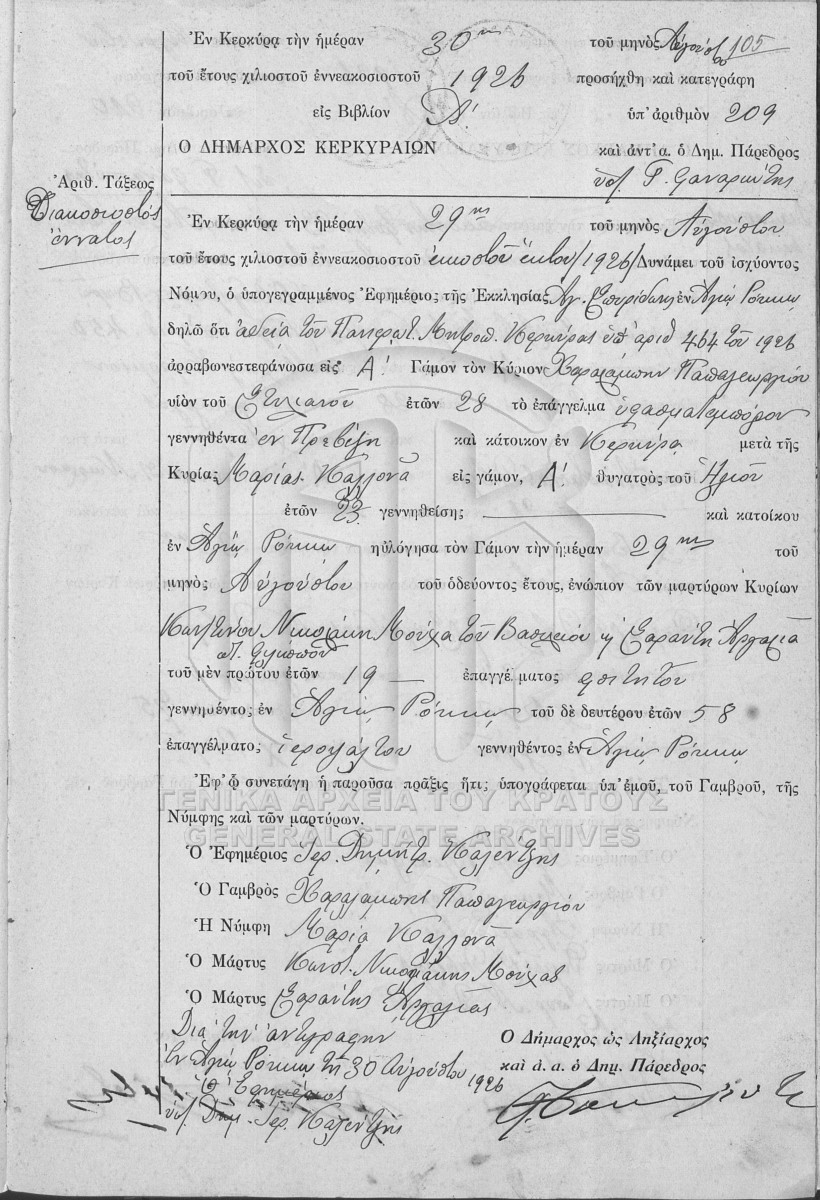 Ἐν Κερκύρᾳ τὴν ἡμέραν 30ην τοῦ μηνὸς Αὐγούστου 105
τοῦ ἔτους χιλιοστοῦ ἐννεακοσιοστοῦ 1926 προσήχθη καὶ κατεγράφη
εἰς Βιβλίον Δ' ὑπ' ἀριθμὸν 209
Ο ΔΗΜΑΡΧΟΣ ΚΕΡΚΥΡΑΙΩΝ
καὶ ἀντ' α. ὁ Δημ. Πάρεδρος
Ἀριθ. Τάξεως
Διακοσιοστὸς
ἔννατος
Ἐν Κερκύρᾳ τὴν ἡμέραν 29ης τοῦ μηνὸς Αὐγούστου
τοῦ ἔτους χιλιοστοῦ ἐννεακοσιοστοῦ εἰκοστοῦ ἕκτου /1926/ Δυνάμει τοῦ ἰσχύοντος
Νόμου, ὁ ὑπογεγραμμένος Ἐφημέριος τῆς Ἐκκλησίας Ἁγ. Σπυρίδωνος ἐν Ἁγίῳ Ρόκκῳ
δηλῶ ὅτι ἀδείᾳ τοῦ Πανιερωτ. Μητροπ. Κερκύρας ὑπ' ἀριθ 464 τοῦ 1926
ἀρραβωνεστεφάνωσα εἰς Α' Γάμον τὸν Κύριον Χαραλάμπην Παπαγεωργίου
υἱὸν τοῦ Στυλιανοῦ ἐτῶν 28 τὸ ἐπάγγελμα ὑφασματέμπορον
γεννηθέντα ἐν Πρεβέζῃ καὶ κάτοικον ἐν Κερκύρᾳ μετὰ τῆς
Κυρίας Μαρίας Καλλονᾶ εἰς γάμον, Α' θυγατρὸς τοῦ Ἠλιοῦ
ἐτῶν 23 γεννηθείσης καὶ κατοίκου
ἐν Ἁγίῳ Ρόκκῳ ηὐλόγησα τὸν Γάμον τὴν ἡμέραν 29ης τοῦ
μηνὸς Αὐγούστου τοῦ ὁδεύοντος ἔτους, ἐνώπιον τῶν μαρτύρων Κυρίων
Κωνστ/νου Νικολάκη Μούχα τοῦ Βασιλείου ἢ Σαράντη Ἀργαλιᾶ
τοῦ μὲν πρώτου ἐτῶν 19 ἐπαγγέλματος φοιτητοῦ
γεννηθέντος ἐν Ἁγίῳ Ρόκκῳ τοῦ δὲ δευτέρου ἐτῶν 58
ἐπαγγέλματος ἱεροψάλτου γεννηθέντος ἐν Ἁγίῳ Ρόκκῳ
Ἐφ' ᾧ συνετάγη ἡ παροῦσα πρᾶξις ἥτις ὑπογράφεται ὑπ' ἐμοῦ, τοῦ Γαμβροῦ, τῆς
Νύμφης καὶ τῶν μαρτύρων.
ΓΕΝΙΚΑ ΑΡΧΕΙΑ ΤΟΥ ΚΡΑΤΟΥΣ
GENERAL STATE ARCHIVES
Ὁ Ἐφημέριος Ἱερ. Δημήτρ. Καλεντζῆς
Ὁ Γαμβρὸς Χαραλάμπης Παπαγεωργίου
Ἡ Νύμφη Μαρία Καλλονᾶ
Ὁ Μάρτυς Κωνστ. Νικολάκης Μούχας
Ὁ Μάρτυς Σαράντης Ἀργαλιᾶς
Διὰ τὴν ἀντιγραφὴν
Ἐν Ἁγίῳ Ρόκκῳ τῇ 30 Αὐγούστου 1926
Ὁ Ἐφημέριος
ὑπ. Δημ. Ἱερ. Καλεντζῆς
Ὁ Δήμαρχος ὡς Ληξίαρχος
καὶ ἀ. α. ὁ Δημ. Πάρεδρος